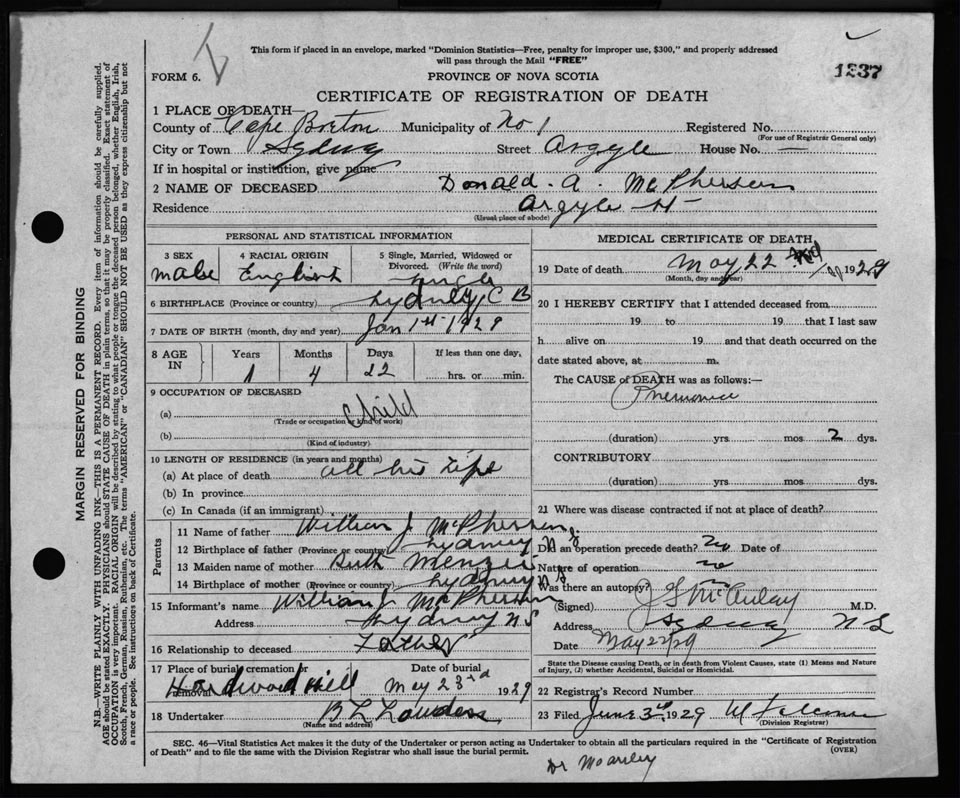 This form if placed in an envelope, marked "Dominion Statistics—Free, penalty for improper use, $300," and properly addressed
will pass through the Mail "FREE"
1237
FORM 6.
PROVINCE OF NOVA SCOTIA
CERTIFICATE OF REGISTRATION OF DEATH
1 PLACE OF DEATH—
County of Cape Breton Municipality of No 1 Registered No.
(For use of Registrar General only)
City or Town Sydney Street Argyle House No. —
If in hospital or institution, give name
2 NAME OF DECEASED Donald. A. McPherson
Residence Argyle St
(Usual place of abode)
PERSONAL AND STATISTICAL INFORMATION
3 SEX 4 RACIAL ORIGIN 5 Single, Married, Widowed or
Divorced. (Write the word)
male English single
6 BIRTHPLACE (Province or country) Sydney, C B
7 DATE OF BIRTH (month, day and year) Jan 1st 1928
8 AGE IN Years Months Days If less than one day,
1 4 22 hrs. or min.
9 OCCUPATION OF DECEASED
(a) child
(Trade or occupation or kind of work)
(b)
(Kind of industry)
10 LENGTH OF RESIDENCE (in years and months)
(a) At place of death all his life
(b) In province
(c) In Canada (if an immigrant)
Parents
11 Name of father William J. McPherson
12 Birthplace of father (Province or country) Sydney N S
13 Maiden name of mother Ruth Menzie
14 Birthplace of mother (Province or country) Sydney N S
15 Informant's name William J. McPherson
Address Sydney N S
16 Relationship to deceased Father
17 Place of burial cremation or Date of burial
removal
Hardwood Hill May 23rd 1929
18 Undertaker
(Name and address)
MEDICAL CERTIFICATE OF DEATH
19 Date of death May 22 1929
(Month, day and year)
20 I HEREBY CERTIFY that I attended deceased from
19 to 19 that I last saw
h alive on 19 and that death occurred on the
date stated above, at m.
The CAUSE of DEATH was as follows:—
Pneumonia
(duration) yrs mos 2 dys.
CONTRIBUTORY
(duration) yrs mos dys.
21 Where was disease contracted if not at place of death?
Did an operation precede death? no Date of
Nature of operation no
Was there an autopsy? no
(Signed) McAulay M.D.
Address Sydney N S
Date May 22/29
State the Disease causing Death, or in death from Violent Causes, state (1) Means and Nature
of Injury, (2) whether Accidental, Suicidal or Homicidal.
22 Registrar's Record Number
23 Filed June 3rd 1929
(Division Registrar)
SEC. 46—Vital Statistics Act makes it the duty of the Undertaker or person acting as Undertaker to obtain all the particulars required in the "Certificate of Registration
of Death" and to file the same with the Division Registrar who shall issue the burial permit. (OVER)
Dr
MARGIN RESERVED FOR BINDING
N.B.—WRITE PLAINLY WITH UNFADING INK—THIS IS A PERMANENT RECORD. Every item of information should be carefully supplied.
AGE should be stated EXACTLY. PHYSICIANS should STATE CAUSE OF DEATH in plain terms, so that it may be properly classified. Exact statement of
OCCUPATION is very important. RACIAL ORIGIN will be described by stating to what people or tongue the deceased person belonged, whether English, Irish,
Scotch, French, German, Russian, Ruthenian, etc. The terms "AMERICAN" or "CANADIAN" SHOULD NOT BE USED as they express citizenship but not
a race or people. See instructions on back of Certificate.